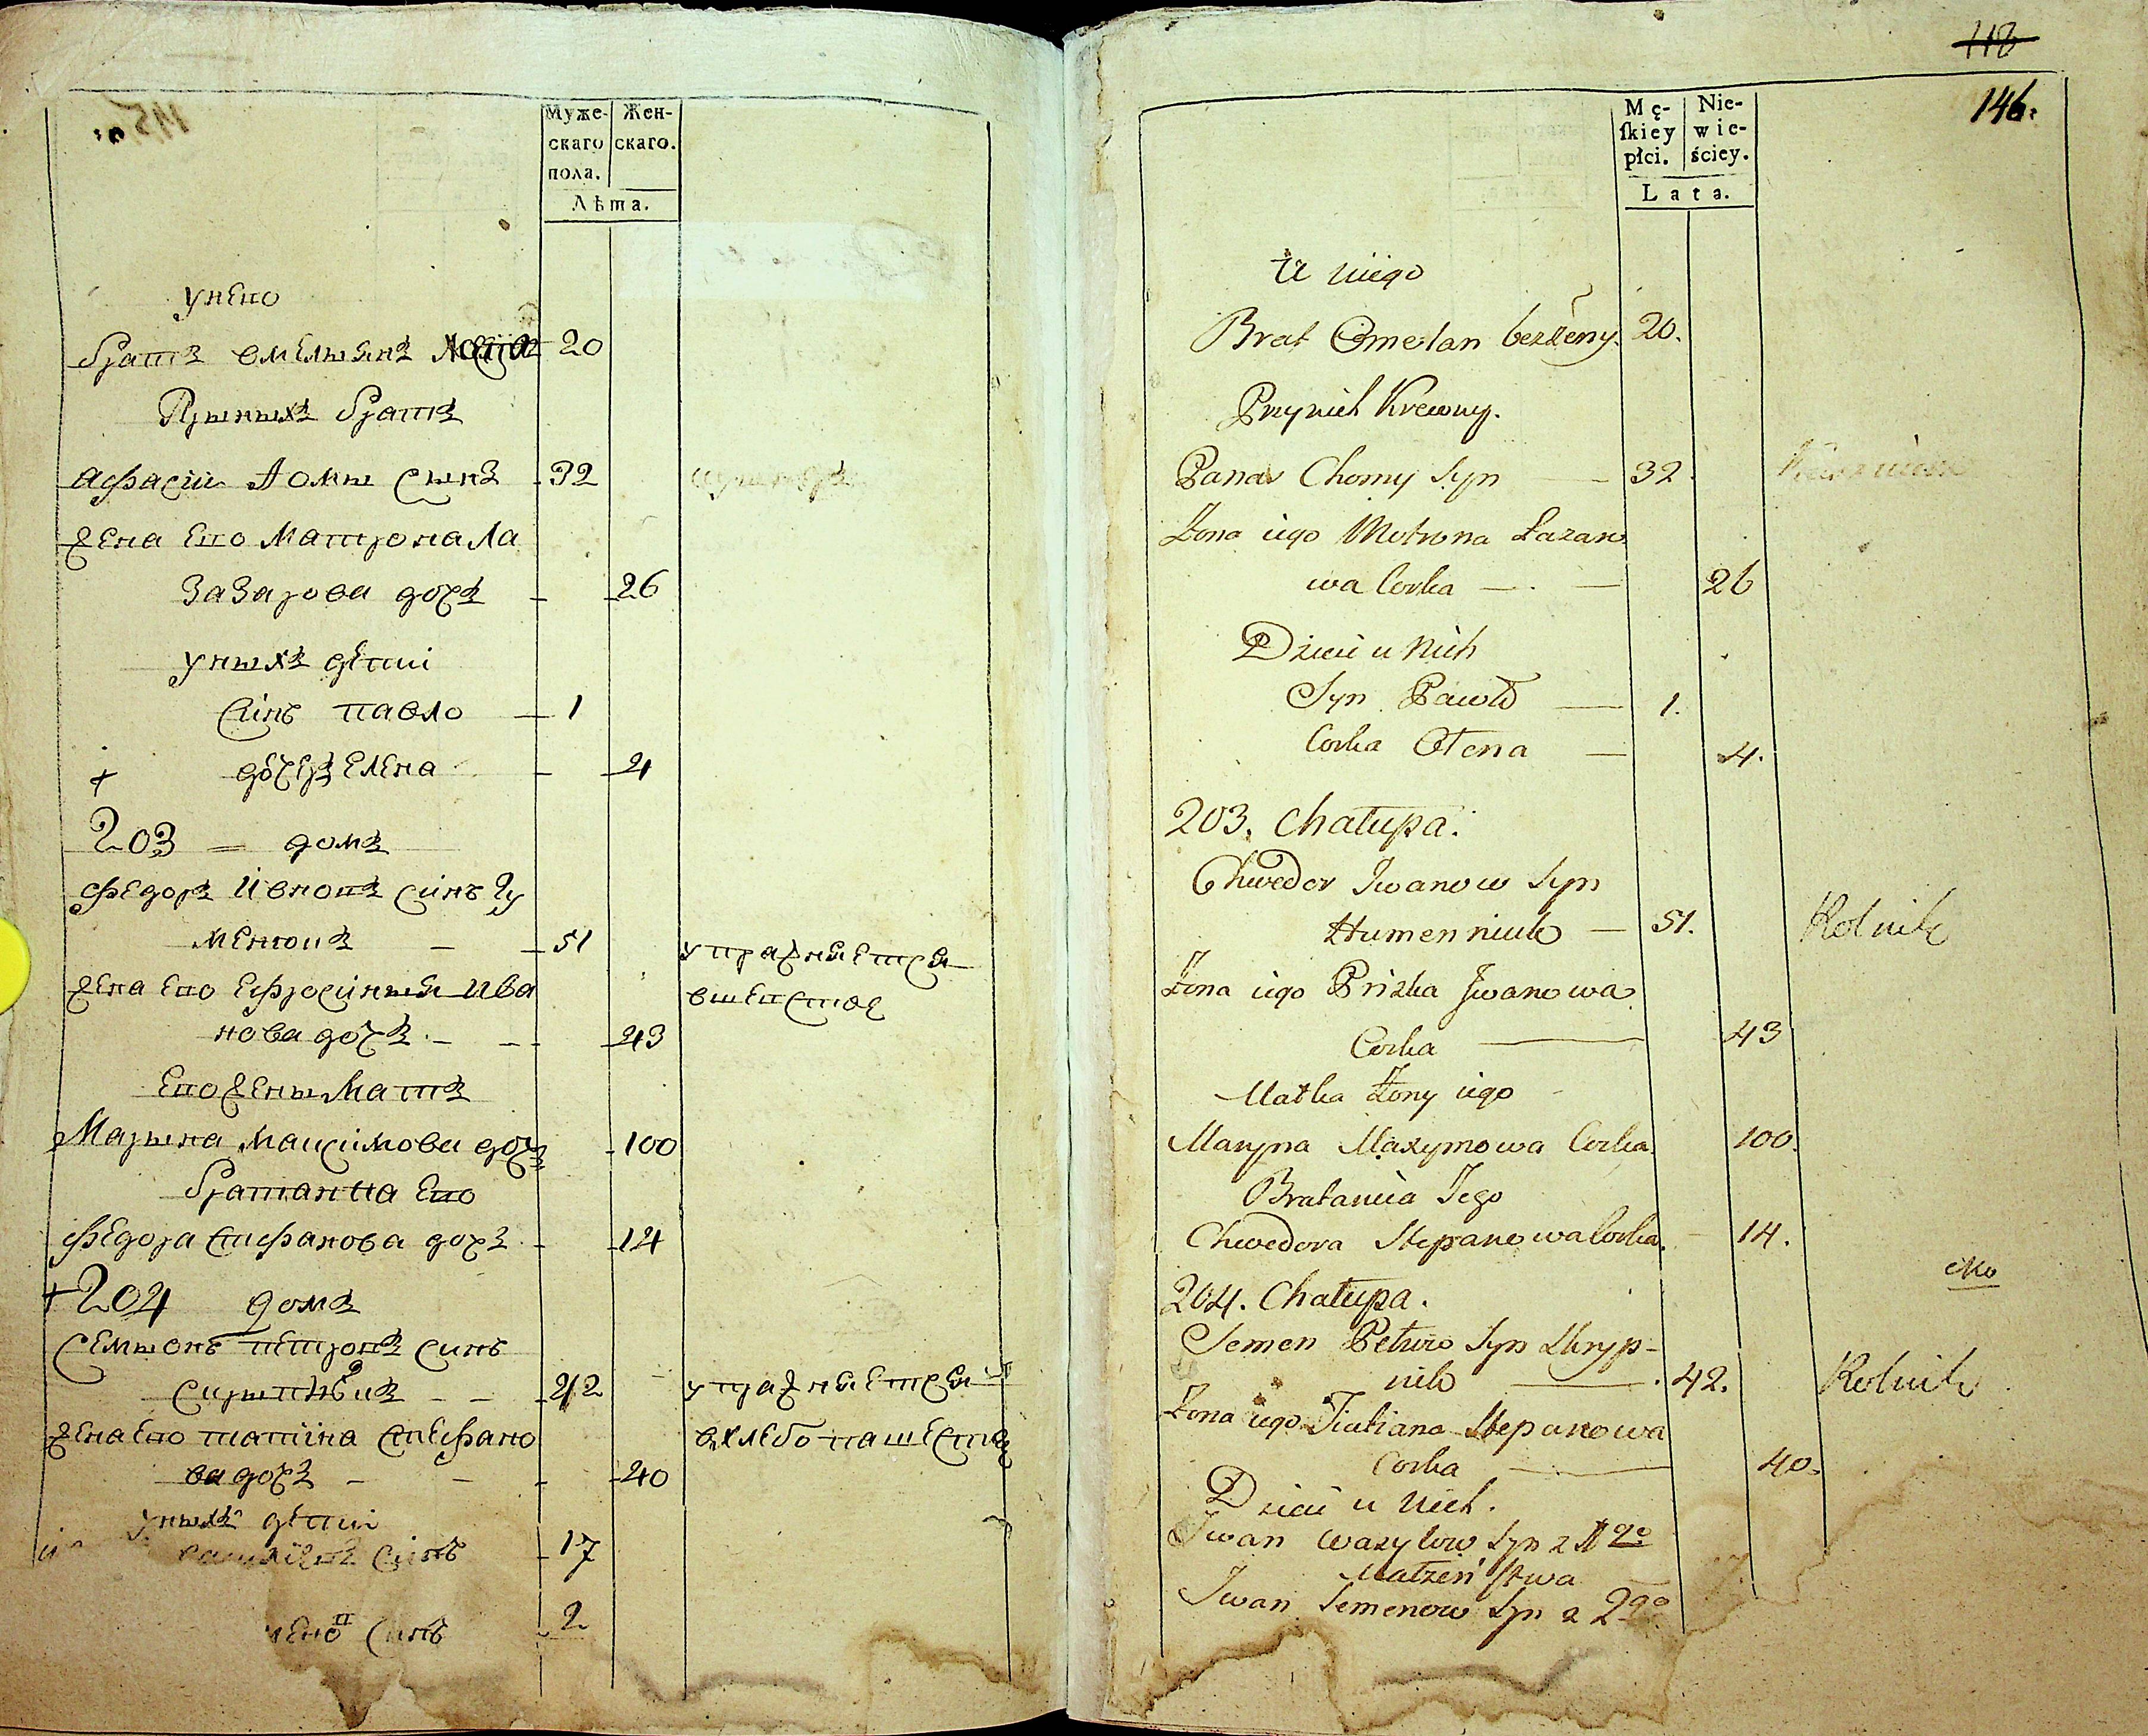 Муже-
скаго
пола.
Жен-
скаго.
Лѣта.
унего
братъ омельянъ холостъ 20
Прыныхъ братъ
Афасіи Ѳомы сынъ 32
жена его Матрона Ла
зазарова дочъ 26
уныхъ дѣти
синъ павло 1
+ дочеръ елена 4
203 = домъ
федоръ Ивновъ синъ Гу
менюкъ 51
упражняется
жена его ефросинья Ива
нова дочъ 43
его жены Матъ
Марына Максимова дочъ 100
братанка его
федора стифанова дочъ 14
+ 204 домъ
семьонъ петровъ синъ
скрыпникъ 42
упражняется
жена его татіна стефано
ва дочъ 40
вхлебопашестве
уныхъ дѣти
синъ 17
синъ 2
118
146.
Mę-
ſkiey
płci.
Nie-
wie-
ściey.
Lata.
U niego
Brat Omelan bezżeny. 20.
Przynich Krewny.
Panas Chomy Syn 32.
Żona iego Motrona Łazaro
wa Corka 26
Dzieci u Nich
Syn Pawło 1.
Corka Ołena 4.
203. Chałupa.
Chwedor Iwanow Syn
Humenniuk 51. Rolnik
Żona iego Priska Iwanowa
Corka 43
Matka Żony iego
Maryna Maxymowa Corka 100.
Bratanica Jego
Chwedora Stepanowa Corka. 14.
204. Chałupa.
Semen Petrow Syn Skryp-
nik 42. Rolnik
Żona iego Tatiana Stepanowa
Corka 40.
Dzieci u Nich.
Iwan Wasylow Syn z 1go
Małżeństwa
Iwan Semenow Syn z 2go